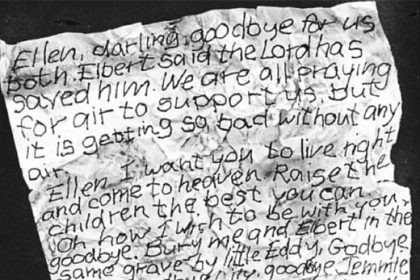 Ellen, darling, goodbye for us
both. Elbert said the Lord has
saved him. We are all praying
for air to support us, but
it is getting so bad without any
air.
Ellen I want you to live right
and come to heaven. Raise the
children the best you can.
Oh how I wish to be with you,
goodbye. Bury me and Elbert in the
same grave by little Eddy. Goodbye,
goodbye Jemmie